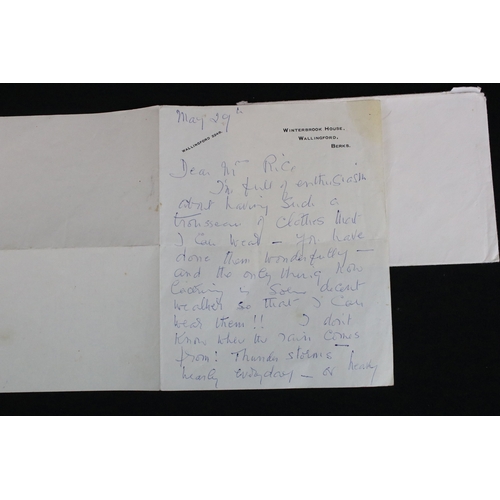 May 29th
WALLINGFORD 2248.
WINTERBROOK HOUSE,
WALLINGFORD,
BERKS.
Dear Mrs Rice
I'm full of enthusiasm
about having such a
trousseau of clothes that
I can wear – you have
done them wonderfully –
and the only thing now
lacking is some decent
weather so that I can
wear them!! I don't
know where the rain comes
from! Thunder storms
nearly everyday – or heavy